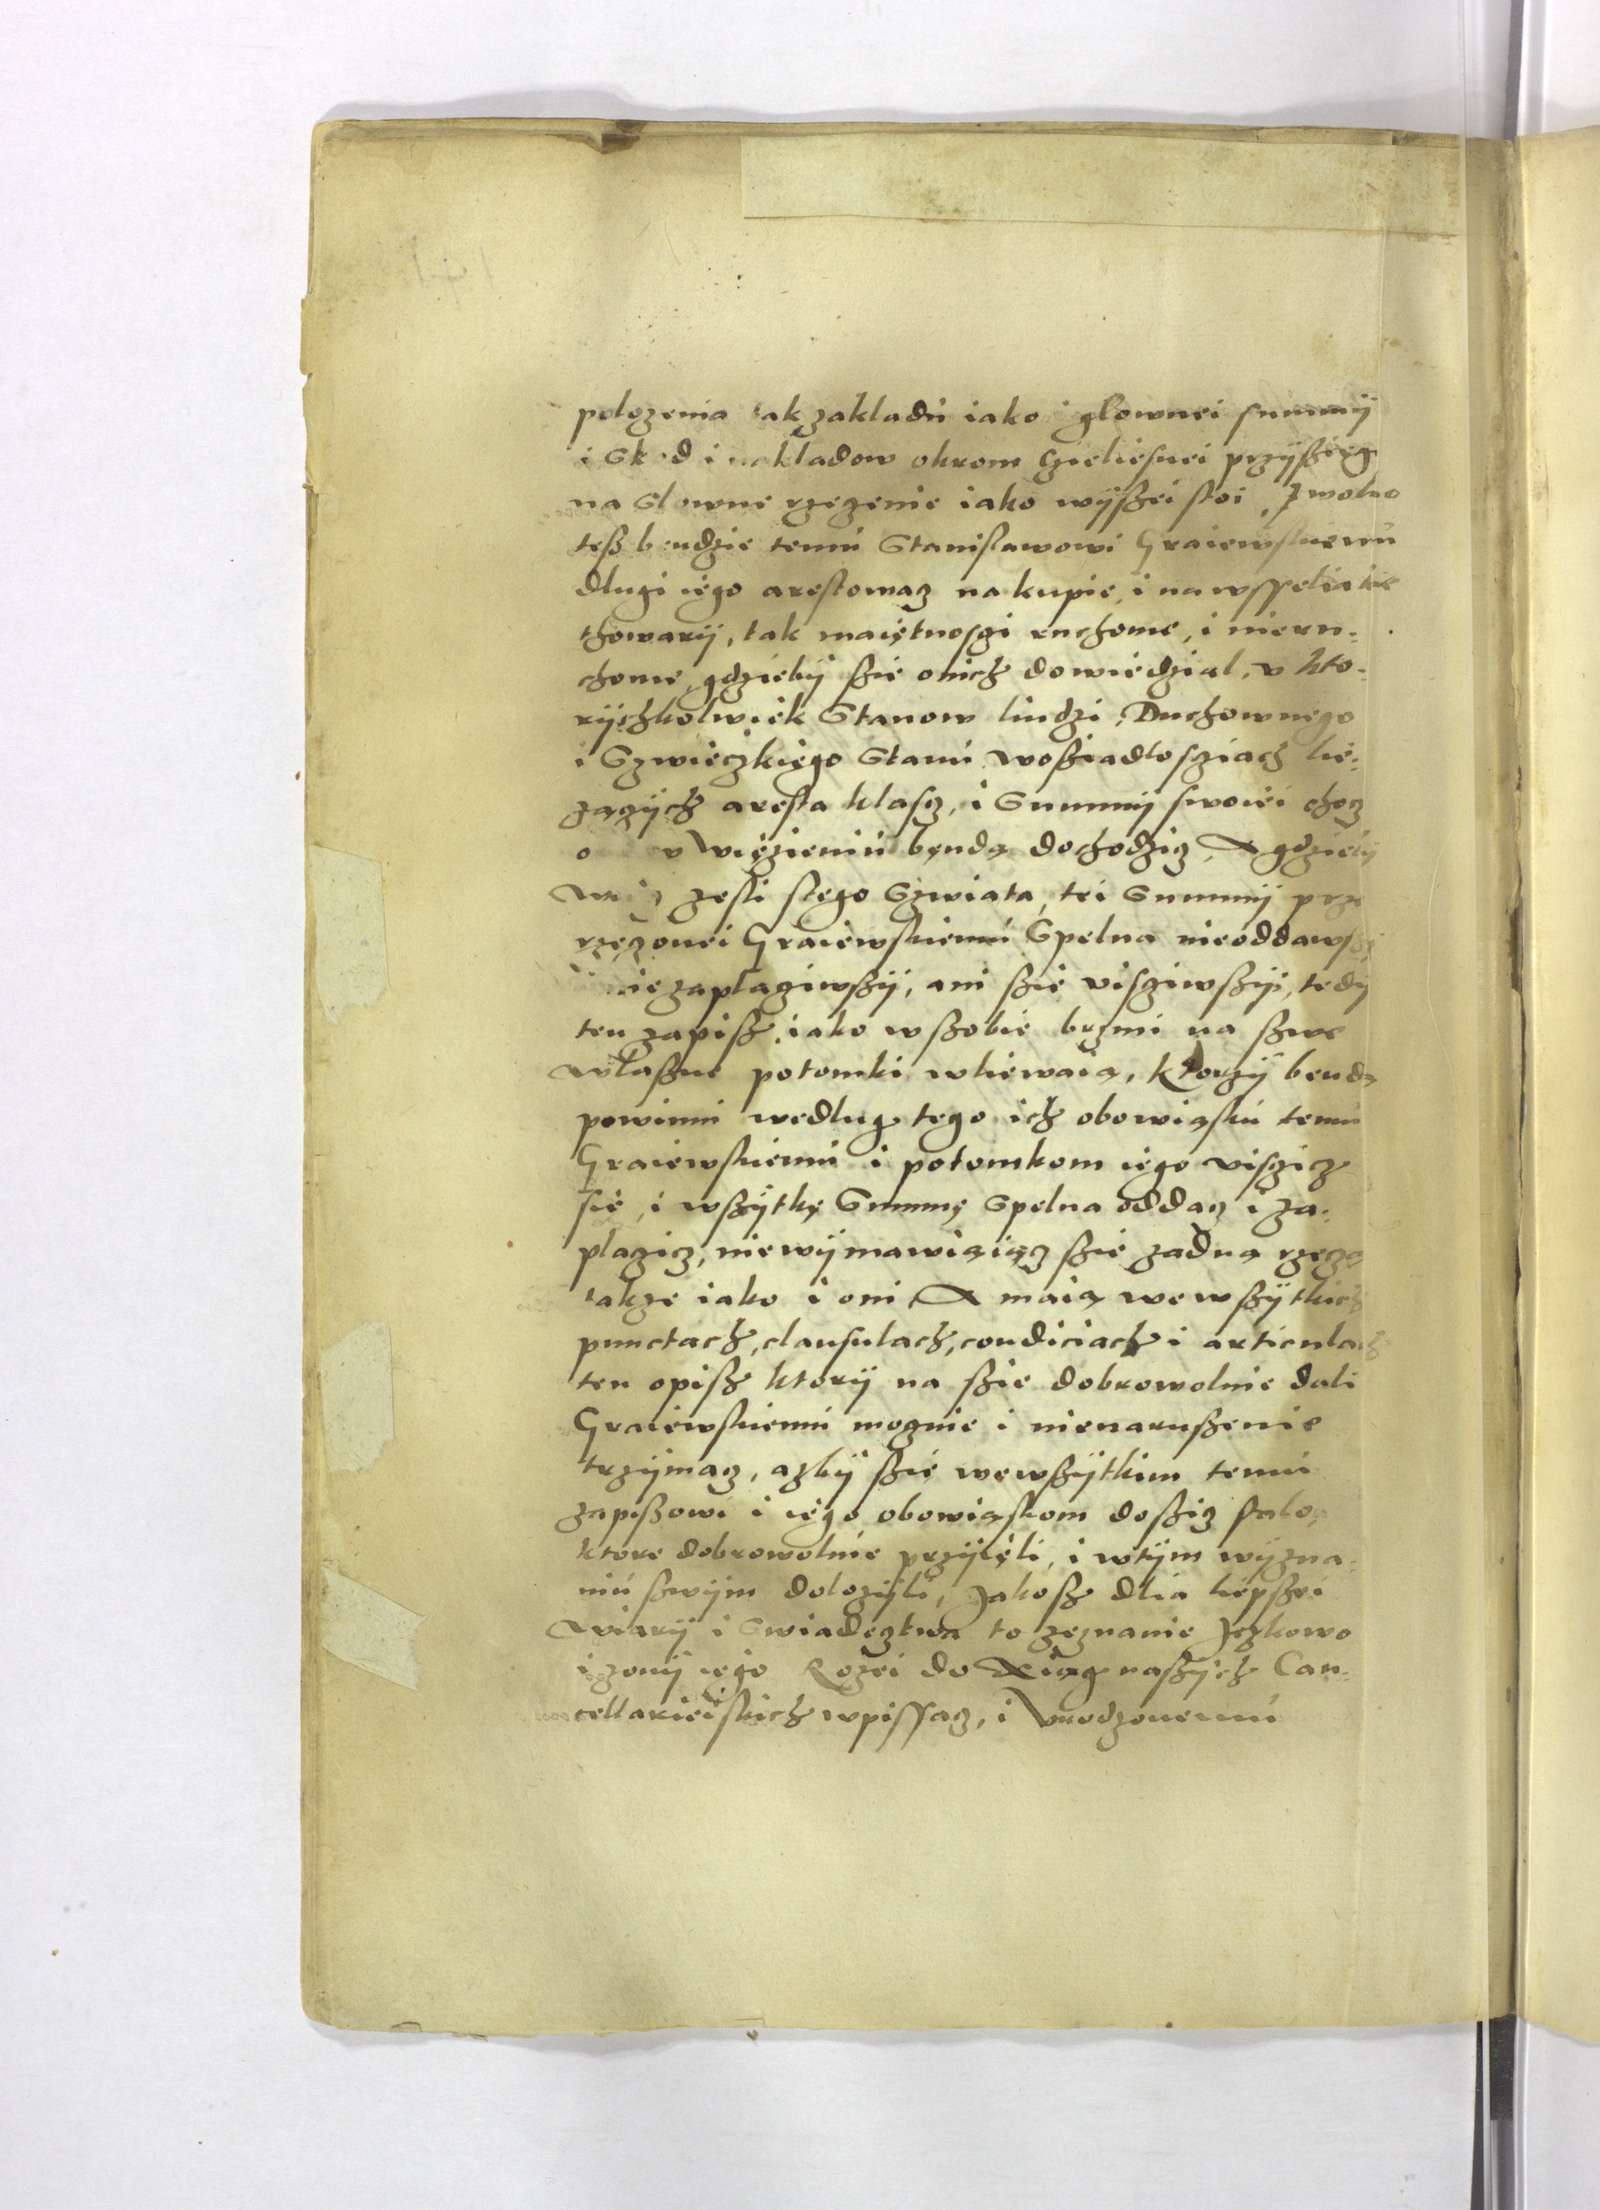 polozenia tak zakladu iako i glownei summÿ
i Skod i nakladow okrom czieliesnei przÿßięg
na Slowne rzeczenie iako wÿßei stoi, I wolno
teß bendzie temu Stanislawowi Graiewskiemu
dlugi iego arestowacz na kupie, i na wsseliakie
thowarÿ, tak maiętnosczi ruchome, i nieru-
chome, gdziebÿ ßie onich dowiedzial, v kto-
rÿchkolwiek Stanow liudzi, Duchownego
i Szwieczkiego Stanu woßiadlosczach lie-
zączÿch aresta klascz, i Summÿ swoiei chocz
v więzieniu bendą dochodzicz, A gdziebÿ
zesli stego Szwiata, tei Summÿ prze
rzeczonei Graiewskiemu Spelna nieoddawßÿ
niezaplacziwßÿ, ani ßie visczywßÿ, tedÿ
ten zapiß, iako w ßobie brzmi na ßwe
wlaßne potomki wliewaią, ktorzÿ bendą
powinni wedlug tego ich obowiąsku temu
Graiewskiemu i potomkom iego visczicz
sie, i wßÿtkę Summę Spelna oddacz i za-
placzicz, niewÿmawiaiącz ßie zadną rzeczą
takze iako i oni A maią we wßÿtkich
punctach, clausulach, condiciach i articulach
ten opiß ktorÿ na ßie dobrowolnie dali
Graiewskiemu mocznie i nienarußenie
trzÿmacz, azbÿ ßie wewßÿtkim temu
zapißowi i iego obowiąskom doßicz stalo,
ktore dobrowolnie przÿięli, i wtÿm wÿzna-
niu ßwÿm dolozÿli, Jakoß dlia liepßei
wiarÿ i Swiadecztwa to zeznanie Jczkowo
i zonÿ iego Rozei do Xiąg naßÿch Can-
cellarieiskich wpissacz, i Vrodzonemu